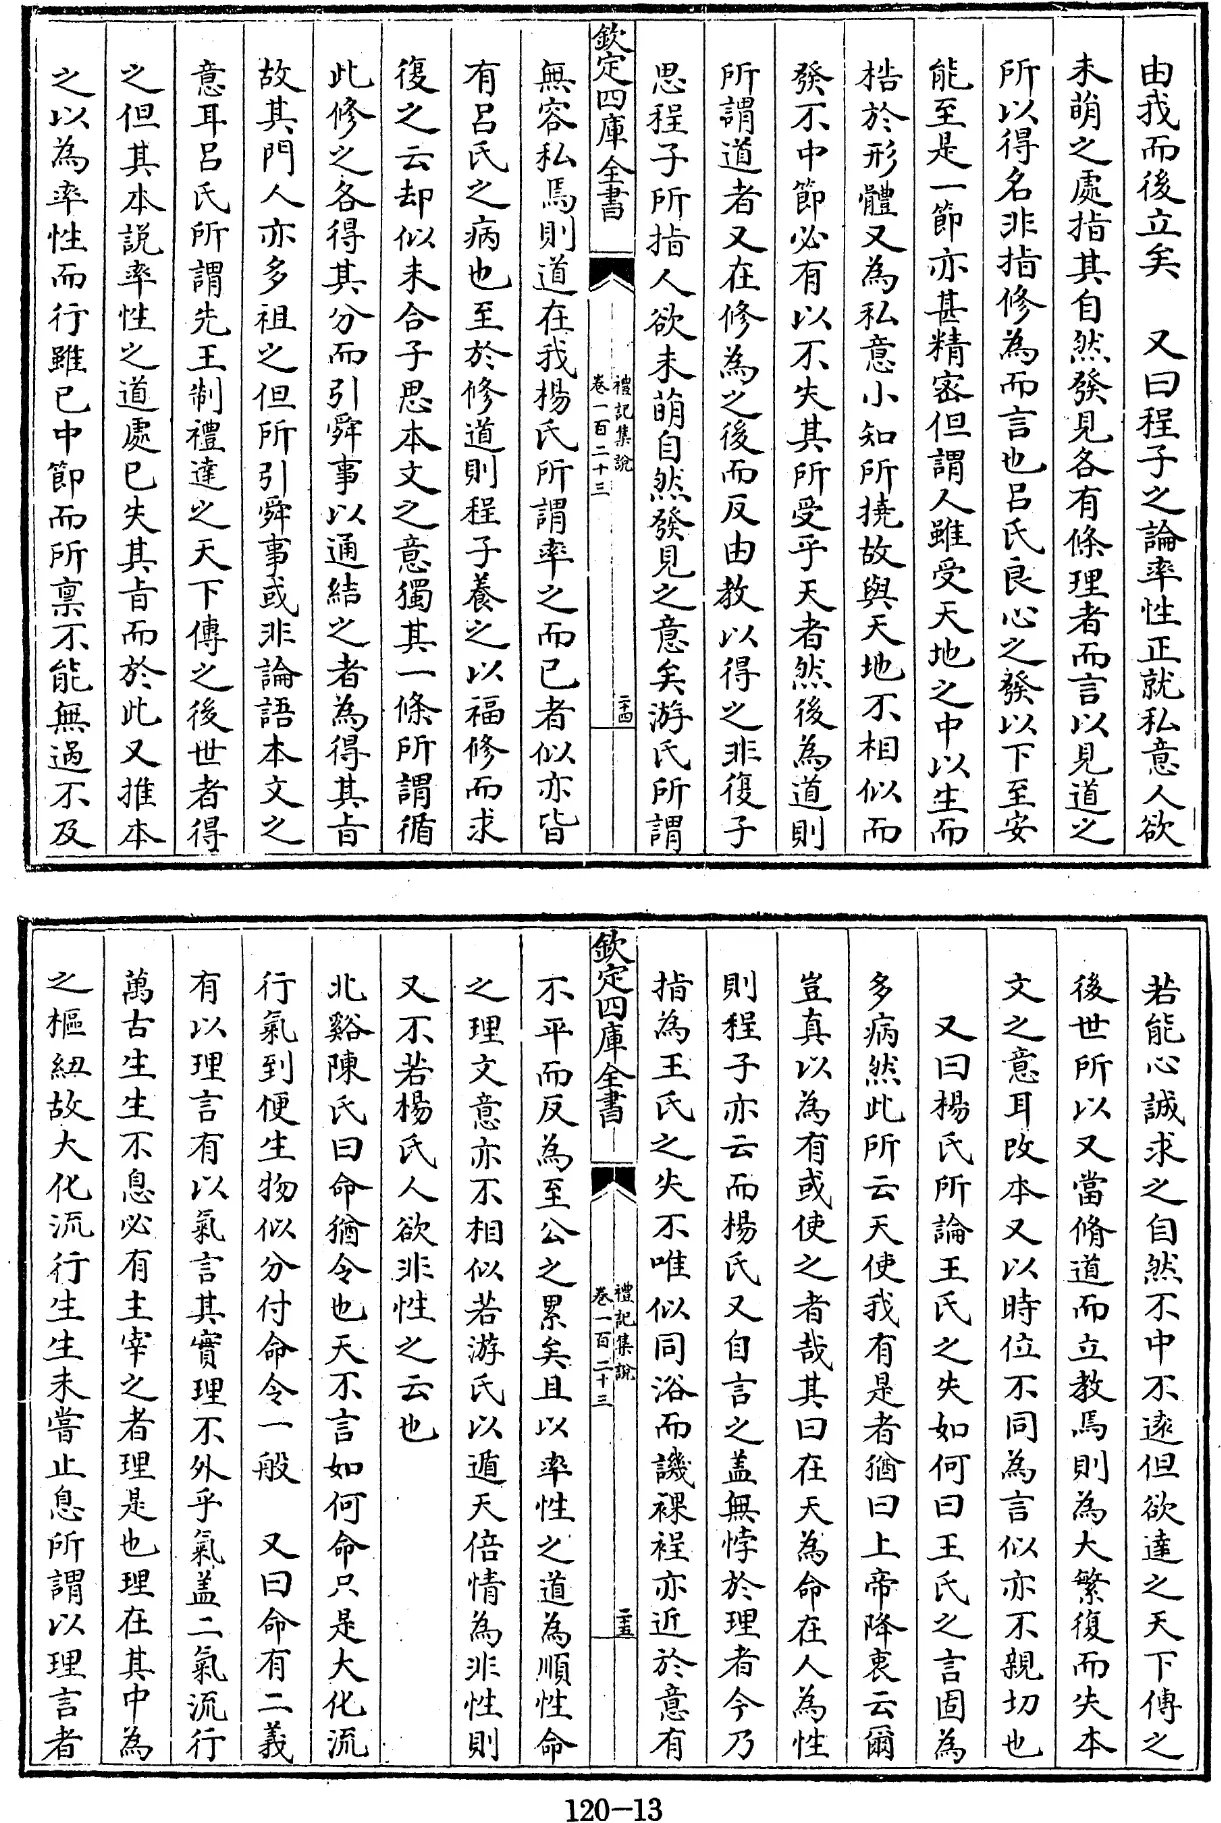 由我而後立矣　又曰程子之論率性正就私意人欲
未萌之處指其自然發見各有條理者而言以見道之
所以得名非指修為而言也吕氏良心之發以下至安
能至是一節亦甚精密但謂人雖受天地之中以生而
梏於形體又為私意小知所撓故與天地不相似而
發不中節必有以不失其所受乎天者然後為道則
所謂道者又在修為之後而反由教以得之非復子
思程子所指人欲未萌自然發見之意矣游氏所謂
欽定四庫全書
禮記集說
卷一百二十三
二十四
無容私焉則道在我楊氏所謂率之而已者似亦皆
有吕氏之病也至於修道則程子養之以福修而求
復之云却似未合子思本文之意獨其一條所謂循
此修之各得其分而引舜事以通結之者為得其旨
故其門人亦多祖之但所引舜事或非論語本文之
意耳吕氏所謂先王制禮達之天下傳之後世者得
之但其本說率性之道處已失其旨而於此又推本
之以為率性而行雖已中節而所禀不能無過不及
若能心誠求之自然不中不遠但欲達之天下傳之
後世所以又當脩道而立教焉則為大繁復而失本
文之意耳改本又以時位不同為言似亦不親切也
又曰楊氏所論王氏之失如何曰王氏之言固為
多病然此所云天使我有是者猶曰上帝降衷云爾
豈真以為有或使之者哉其曰在天為命在人為性
則程子亦云而楊氏又自言之盖無悖於理者今乃
指為王氏之失不唯似同浴而譏裸裎亦近於意有
欽定四庫全書
禮記集說
卷一百二十三
二十五
不平而反為至公之累矣且以率性之道為順性命
之理文意亦不相似若游氏以遁天倍情為非性則
又不若楊氏人欲非性之云也
北谿陳氏曰命猶令也天不言如何命只是大化流
行氣到便生物似分付命令一般　又曰命有二義
有以理言有以氣言其實理不外乎氣盖二氣流行
萬古生生不息必有主宰之者理是也理在其中為
之樞紐故大化流行生生未嘗止息所謂以理言者
120-13